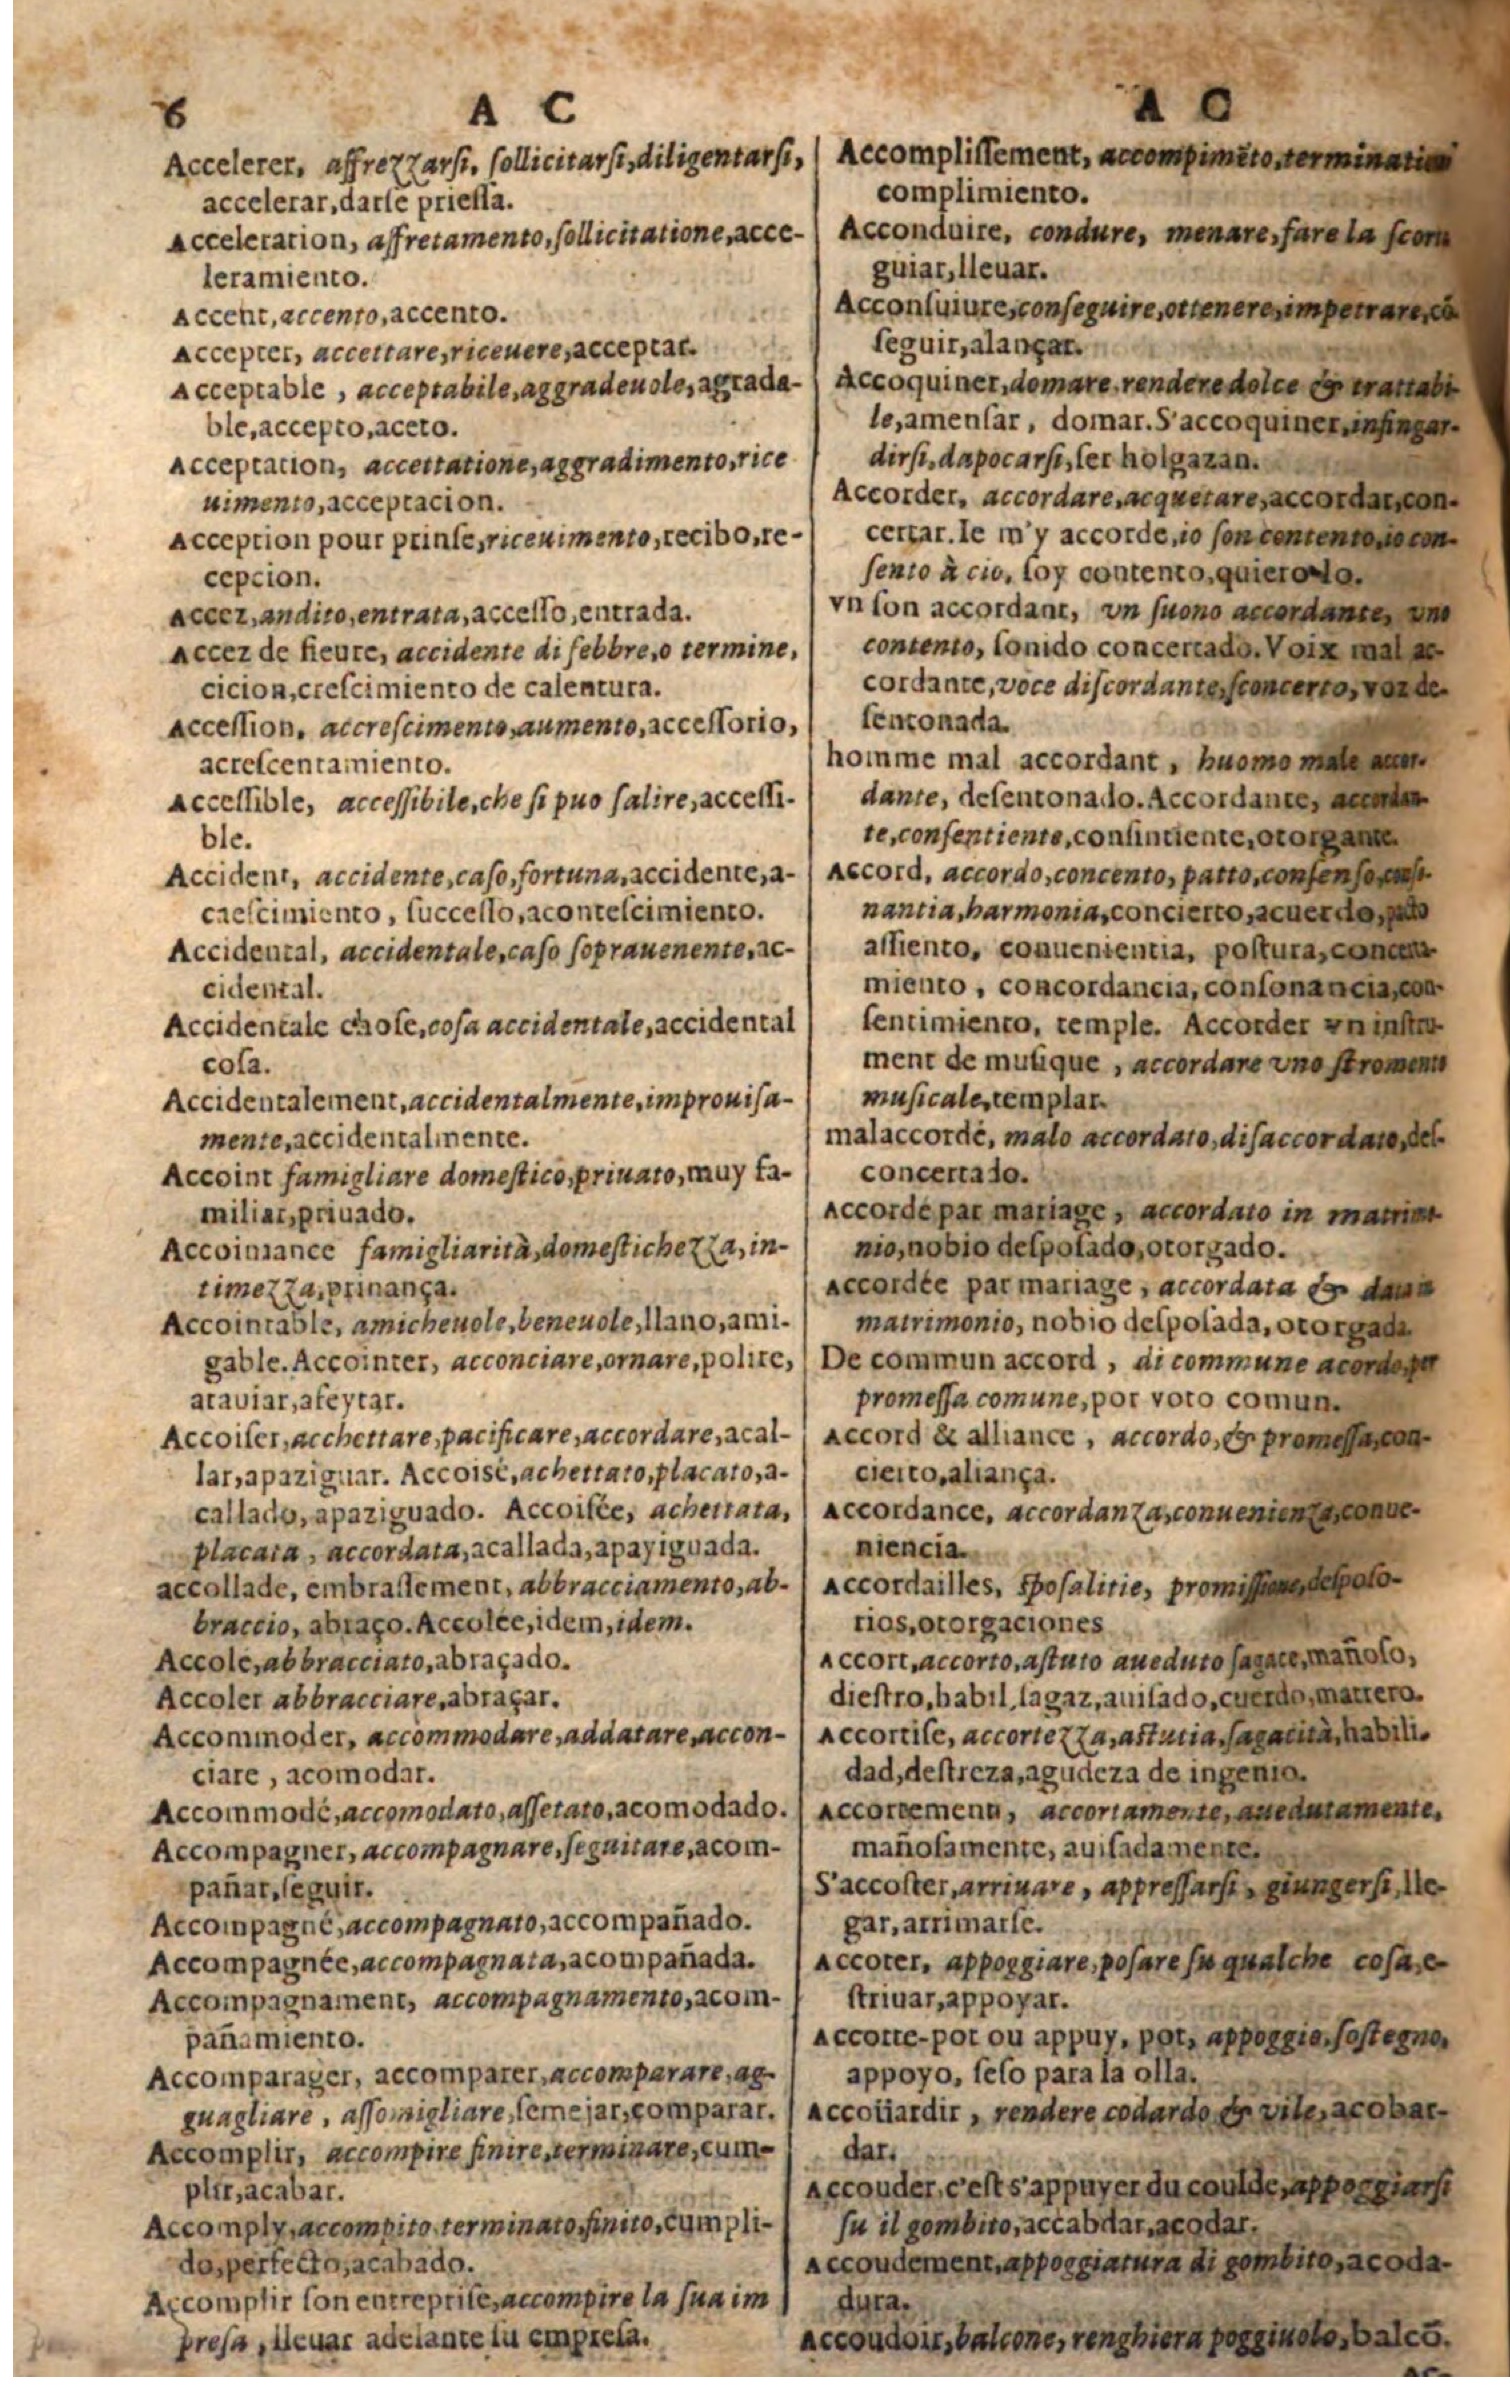 6 A C
Accelerer, affrezzarsi, sollicitarsi, diligentarsi,
accelerar, darse priessa.
Acceleration, affretamento, sollicitatione, acce-
leramiento.
Accent, accento, accento.
Accepter, accettare, riceuere, acceptar.
Acceptable, acceptabile, aggradeuole, agrada-
ble, accepto, aceto.
Acceptation, accettatione, aggradimento, rice
uimento, acceptacion.
Acception pour prinse, riceuimento, recibo, re-
cepcion.
Accez, andito, entrata, accesso, entrada.
Accez de fieure, accidente di febbre, o termine,
cicion, crescimiento de calentura.
Accession, accrescimento, aumento, accessorio,
acrescentamiento.
Accessible, accessibile, che si puo salire, accessi-
ble.
Accident, accidente, caso, fortuna, accidente, a-
caescimiento, successo, acontescimiento.
Accidental, accidentale, caso soprauenente, ac-
cidental.
Accidentale chose, cosa accidentale, accidental
cosa.
Accidentalement, accidentalmente, improuisa-
mente, accidentalmente.
Accoint famigliare domestico, priuato, muy fa-
miliar, priuado.
Accointance famigliarità, domestichezza, in-
timezza, prinança.
Accointable, amicheuole, beneuole, llano, ami-
gable. Accointer, acconciare, ornare, polire,
ataviar, afeytar.
Accoiser, acchettare, pacificare, accordare, acal-
lar, apaziguar. Accoisé, achettato, placato, a-
callado, apaziguado. Accoisée, achettata,
placata, accordata, acallada, apayiguada.
accollade, embrassement, abbracciamento, ab-
braccio, abraço. Accolée, idem, idem.
Accolé, abbracciato, abraçado.
Accoler abbracciare, abraçar.
Accommoder, accommodare, addatare, accon-
ciare, acomodar.
Accommodé, accomodato, assetato, acomodado.
Accompagner, accompagnare, seguitare, acom-
pañar, seguir.
Accompagné, accompagnato, accompañado.
Accompagnée, accompagnata, acompañada.
Accompagnament, accompagnamento, acom-
pañamiento.
Accomparager, accomparer, accomparare, ag-
guagliare, assomigliare, semejar, comparar.
Accomplir, accompire finire, terminare, cum-
plir, acabar.
Accomply, accompito, terminato, finito, cumpli-
do, perfecto, acabado.
Accomplir son entreprise, accompire la sua im
presa, lleuar adelante su empresa.
A C
Accomplissement, accompimẽto,
complimiento.
Acconduire, condure, menare, fare la
guiar, lleuar.
Acconsuiure, conseguire, ottenere, impetrare, cõ-
seguir, alançar.
Accoquiner, domare, rendere dolce & trattabi-
le, amensar, domar. S'accoquiner, infingar-
dirsi, dapocarsi, ser holgazan.
Accorder, accordare, acquetare, accordar, con-
certar. Ie m'y accorde, io son contento, io con-
sento à cio, soy contento, quiero lo.
vn son accordant, vn suono accordante, vno
contento, sonido concertado. Voix mal ac-
cordante, voce discordante, sconcerto, voz de-
sentonada.
homme mal accordant, huomo male accor-
dante, desentonado. Accordante, accordan-
te, consentiente, consintiente, otorgante.
Accord, accordo, concento, patto, consenso,
nantia, harmonia, concierto, acuerdo, pacto
assiento, conuenientia, postura, concerta-
miento, concordancia, consonancia, con-
sentimiento, temple. Accorder vn instru-
ment de musique, accordare vno stromento
musicale, templar.
malaccordé, malo accordato, disaccordato, des-
concertado.
Accordé par mariage, accordato in matrimo-
nio, nobio desposado, otorgado.
Accordée par mariage, accordata & data in
matrimonio, nobio desposada, otorgada.
De commun accord, di commune acordo, per
promessa comune, por voto comun.
Accord & alliance, accordo, & promessa, con-
cierto, aliança.
Accordance, accordanza, conuenienza, conue-
niencia.
Accordailles, sposalitie, promissione, desposo-
rios, otorgaciones
Accort, accorto, astuto aueduto sagace, mañoso,
diestro, habil, sagaz, auisado, cuerdo, matrero.
Accortise, accortezza, astutia, sagacità, habili-
dad, destreza, agudeza de ingenio.
Accortement, accortamente, auedutamente,
mañosamente, auisadamente.
S'accoster, arriuare, appressarsi, giungersi, lle-
gar, arrimarse.
Accoter, appoggiare, posare su qualche cosa, e-
striuar, appoyar.
Accotte-pot ou appuy, pot, appoggio, sostegno,
appoyo, seso para la olla.
Accoüardir, rendere codardo & vile, acobar-
dar.
Accouder, c'est s'appuyer du coulde, appoggiarsi
su il gombito, accabdar, acodar.
Accoudement, appoggiatura di gombito, acoda-
dura.
Accoudoir, balcone, renghiera poggiuolo, balcõ.